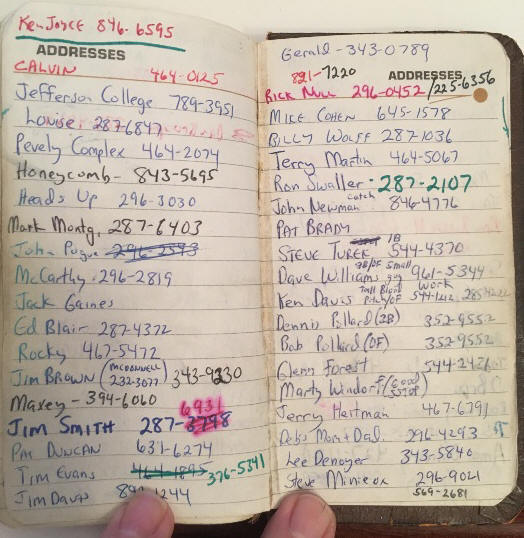 Ken Joyce 846-6595
ADDRESSES
CALVIN 464-0125
Jefferson College 789-3951
Louise 287-6847
Pevely Complex 464-2074
Honeycomb - 843-5695
Heads Up 296-3030
Mark Montg. 287-6403
John Pogue 296-2593
McCarthy - 296-2819
Jack Gaines
Ed Blair 287-4372
Rocky 467-5472
Jim BROWN (McDONNELL 232-3077) 343-9230
Maxey - 394-6060
6931
Jim SMITH 287-3798
Pat DUNCAN 631-6274
Tim Evans 464-1895 376-5341
Jim Davis 244
Gerald - 343-0789
821-7220
ADDRESSES
RICK NULL 296-0452/225-6356
MIKE COHEN 645-1578
BILLY WOLFF 287-1036
Terry Martin 464-5067
Ron Swaller - 287-2107
John Newman catch 846-4776
PAT BRADY
STEVE TUREK 1B 544-4370
Dave Williams 2B/OF small guy 961-5344
Ken Davis Tall Blond Pitch/OF Work 544-1212
Dennis Pollard (2B) 352-9552
Bob Pollard (OF) 352-9552
Glenn Forest 544-2426
Marty Windorf (Good
Jerry Heitman 467-6791
Debs Mom + Dad. 296-4293
Lee Denoyer 343-5840
Steve Minieox 296-9021
569-2681